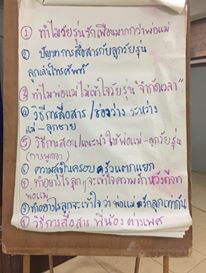 ① ทำไมวัยรุ่นรักเพื่อนมากกว่าพ่อแม่
② ปัญหาการสื่อสารกับลูกวัยรุ่น
ลูกเล่นโทรศัพท์
③ ทำไมพ่อแม่ไม่เข้าใจวัยรุ่น "จำกัดเวลา"
④ วิธีการสื่อสาร /ช่องว่าง ระหว่าง
แม่-ลูกชาย
⑤ วิธีการสอน/แนะนำ ให้พ่อแม่-ลูกวัยรุ่น
(การพูดจา)
⑥ ความเป็นครอบครัวแตกแยก
⑦ ทำอย่างไรลูกๆจะเข้าใจความรักหวังดีจาก
พ่อแม่
⑧ ทำอย่างไรลูกจะเข้าใจว่าพ่อแม่รักลูกเท่ากัน
⑨ วิธีการสื่อสาร พี่น้อง ต่างเพศ